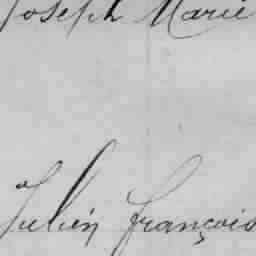 Joseph Marie
Julien françois